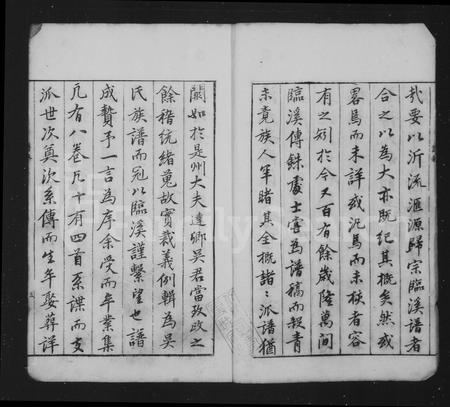 哉要以沂流滙源歸宗臨溪譜者
合之以為大亦既紀其概矣然或
畧焉而未詳或泥焉而未核者容
有之矧於今又百有餘歲隆萬間
臨溪傳銖處士嘗為譜稿而殺青
未竟族人罕睹其全概諸〻派譜猶
闕如於是州大夫達卿吳君當致政之
餘稽統緒蒐故實裁義例輯為吳
氏族譜而冠以臨溪謹繫望也譜
成贅予一言為序余受而卒業集
凡有八卷凡十有四首系譜而支
派世次奠次系傳而生年娶葬詳